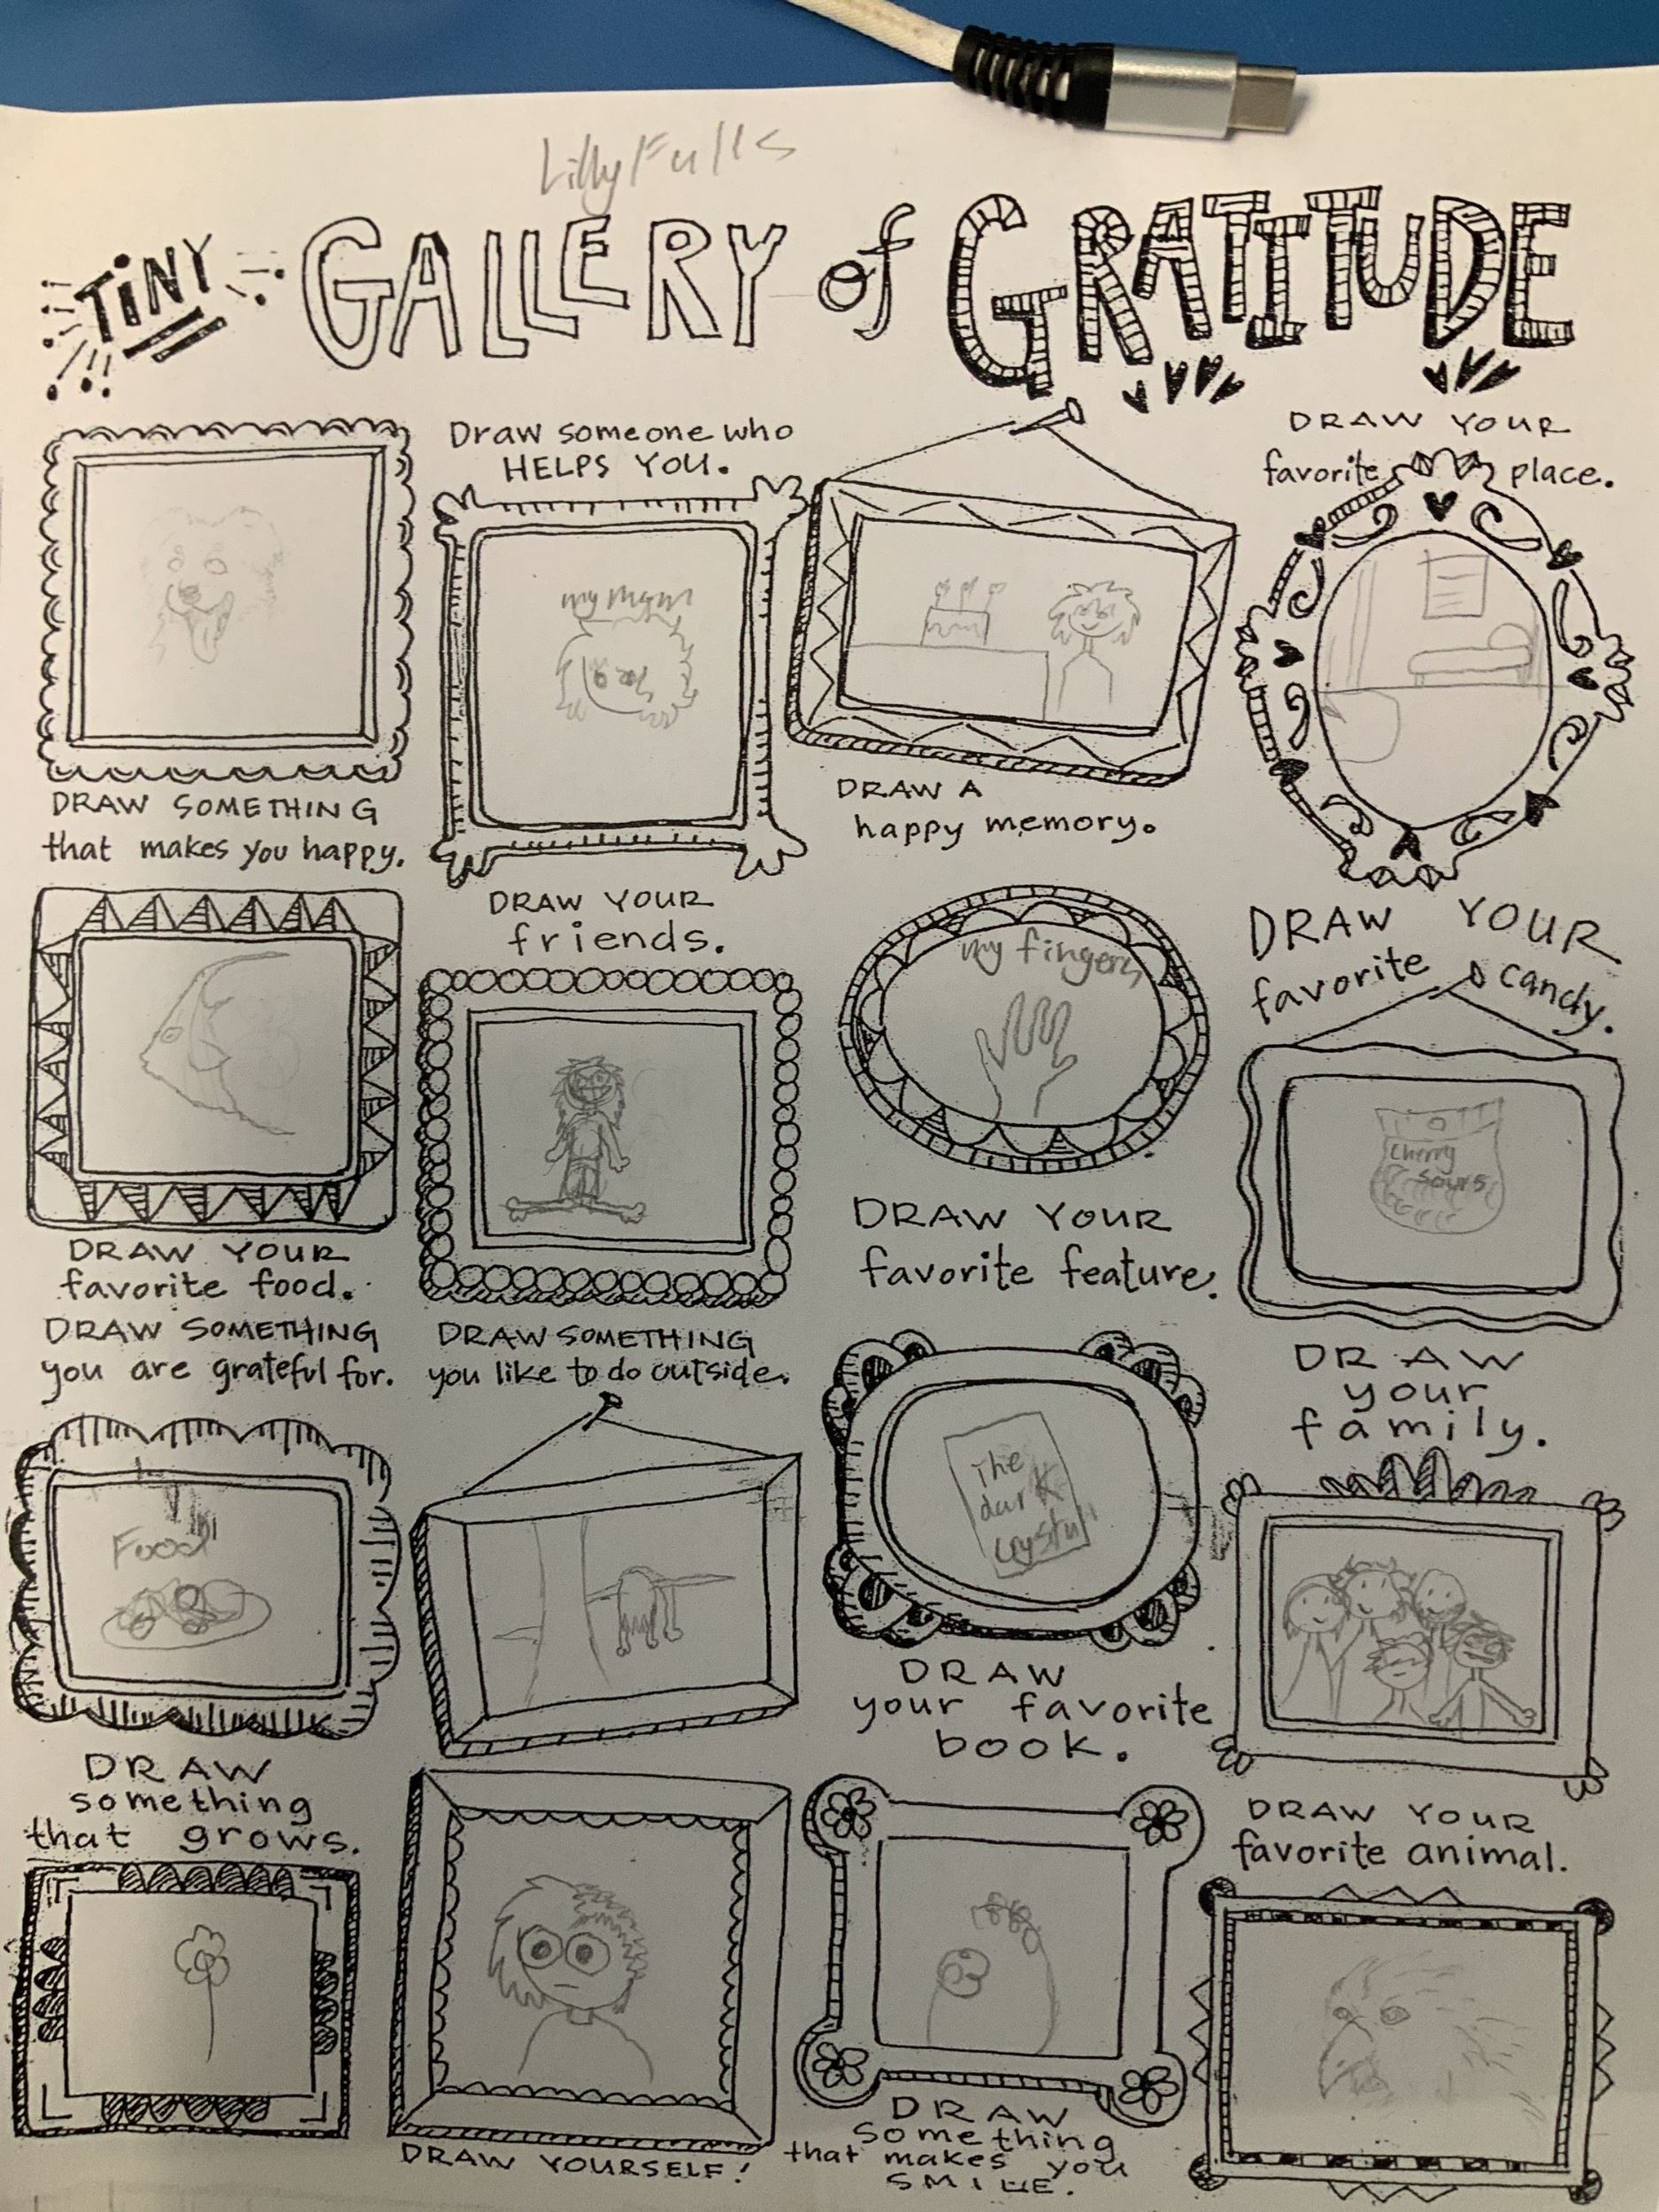 Lilly Fulls
TiNY GALLERY of GRATITUDE
DRAW SOMETHING
that makes you happy.
Draw someone who
HELPS YOU.
my mom
DRAW A
happy memory.
DRAW YOUR
favorite place.
DRAW YOUR
favorite food.
DRAW YOUR
friends.
my fingers
DRAW YOUR
favorite feature.
DRAW YOUR
favorite candy.
Cherry
Sours
DRAW SOMETHING
you are grateful for.
Food
DRAW SOMETHING
you like to do outside.
The
dark
crystal
DRAW
your favorite
book.
DRAW
your
family.
DRAW
something
that grows.
DRAW YOURSELF!
DRAW
something
that makes you
SMILE.
DRAW YOUR
favorite animal.